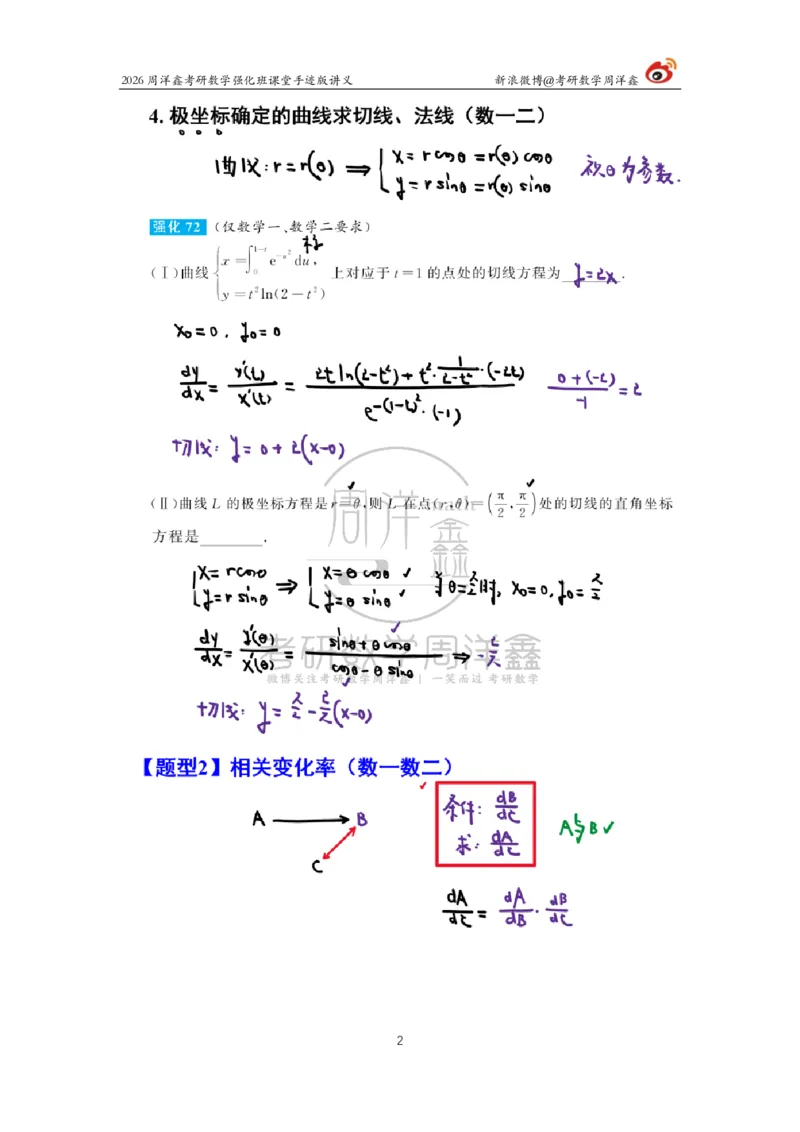 2026 周洋鑫考研数学强化班课堂手迹版讲义 新浪微博@考研数学周洋鑫
4. 极坐标确定的曲线求切线、法线（数一二）
曲线: r = r(θ) ⟹ { x = r cosθ = r(θ) cosθ 视θ为参数.
y = r sinθ = r(θ) sinθ
强化 72 （仅数学一、数学二要求）
（Ⅰ）曲线 { x = ∫₀^{1-t} e^{-u²} du, y = t² ln(2-t²) 上对应于 t=1 的点处的切线方程为 y=2x .
x₀=0, y₀=0
dy/dx = y'(t)/x'(t) = [2t ln(2-t²) + t²· 1/(2-t²) ·(-2t)] / [e^{-(1-t)²}·(-1)] [0+(-2)]/(-1) = 2
切线: y = 0 + 2(x-0)
（Ⅱ）曲线 L 的极坐标方程是 r=θ,则 L 在点(r,θ)=(π/2, π/2)处的切线的直角坐标
方程是 ______ .
{ x = r cosθ ⟹ { x = θ cosθ ✓ 当θ=π/2时, x₀=0, y₀=π/2
y = r sinθ y = θ sinθ ✓
dy/dx = y'(θ)/x'(θ) = (sinθ + θ cosθ)/(cosθ - θ sinθ) ⟹ -2/π
切线: y = π/2 - 2/π (x-0)
周洋鑫
考研数学周洋鑫
微博关注考研数学周洋鑫 | 一笑而过 考研数学
【题型2】相关变化率（数一数二）
A ⟶ B
C
条件: dB/dt
求: dA/dt
A与B ✓
dA/dt = dA/dB · dB/dt
2